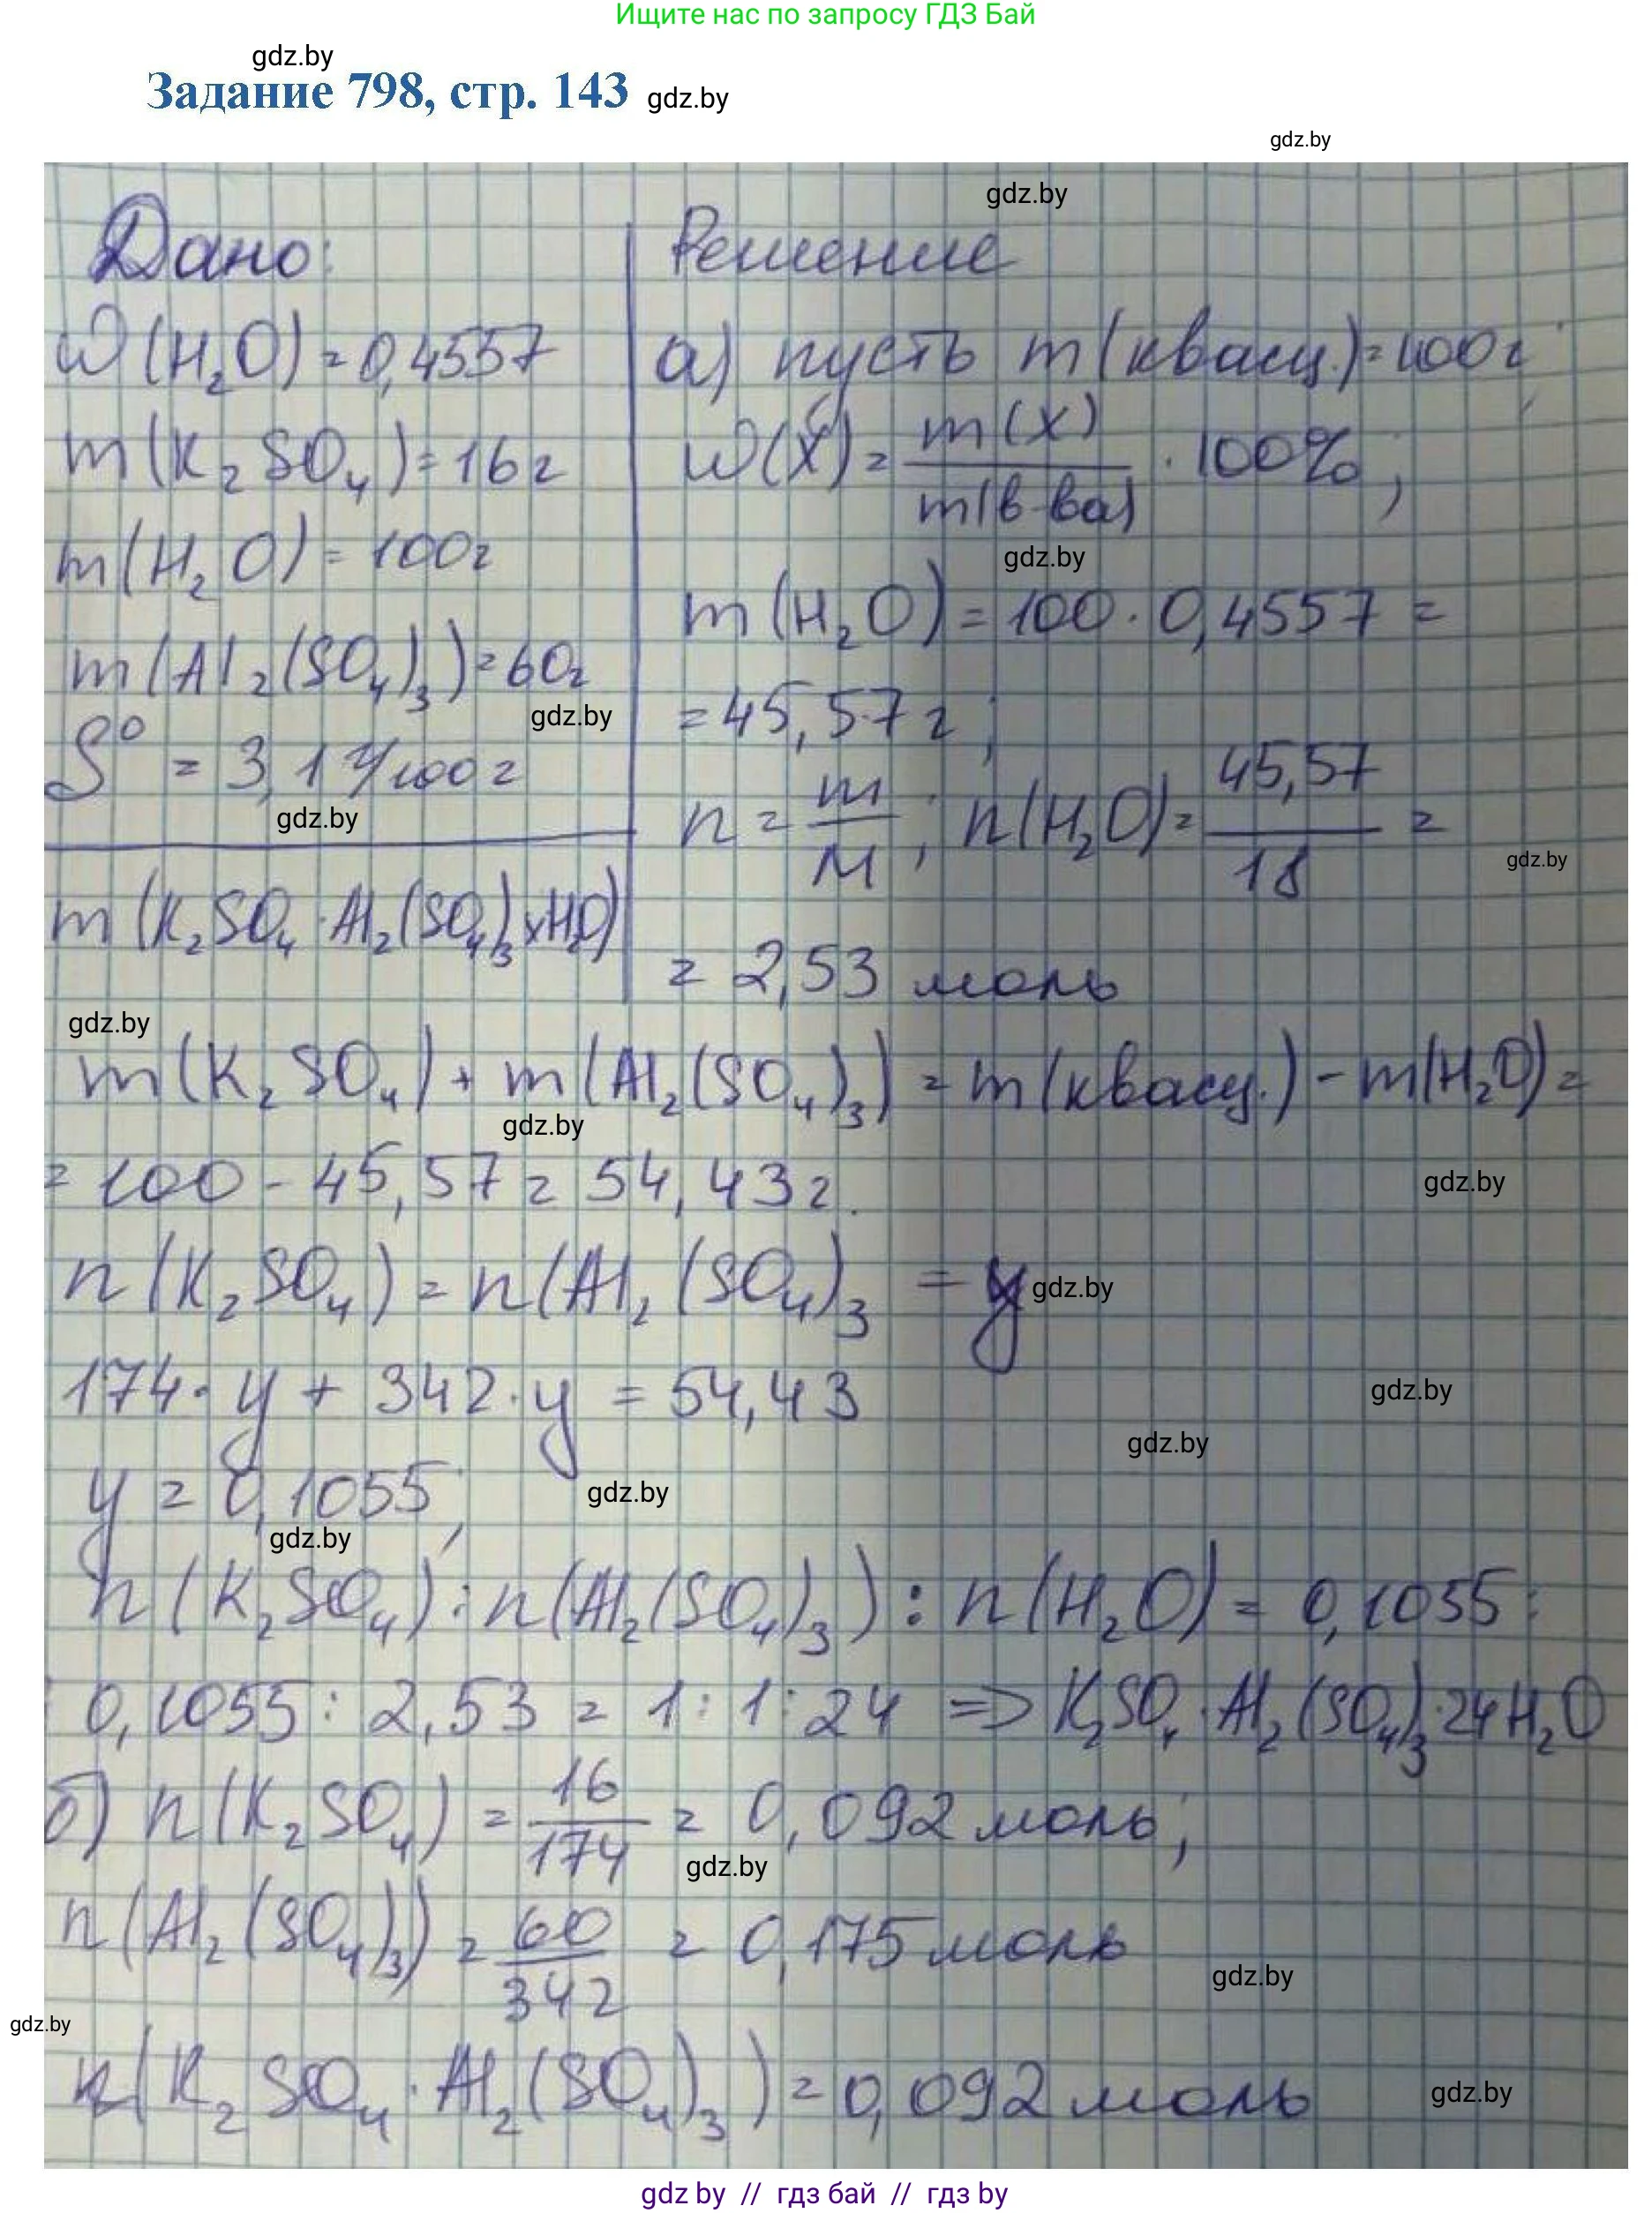 Ищите нас по запросу ГДЗ Бай
gdz.by
Задание 798, стр. 143 gdz.by
gdz.by
gdz.by
Дано:
W(H₂O) = 0,4557
m(K₂SO₄) = 16г
m(H₂O) = 100г
m(Al₂(SO₄)₃) = 60г
gdz.by
S⁰ = 3,1 г/100г
gdz.by
m(K₂SO₄·Al₂(SO₄)₃·xH₂O)
Решение
а) пусть m(квасц.) = 100г;
W(X) = m(X)/m(в-ва) · 100%;
gdz.by
m(H₂O) = 100·0,4557 =
= 45,57г;
n = m/M; n(H₂O) = 45,57/18 =
gdz.by
= 2,53 моль
gdz.by
m(K₂SO₄) + m(Al₂(SO₄)₃) = m(квасц.) - m(H₂O) =
gdz.by
= 100 - 45,57 = 54,43г.
gdz.by
n(K₂SO₄) = n(Al₂(SO₄)₃ = y
gdz.by
174·y + 342·y = 54,43
gdz.by
gdz.by
y = 0,1055;
gdz.by
gdz.by
n(K₂SO₄) : n(Al₂(SO₄)₃) : n(H₂O) = 0,1055 :
: 0,1055 : 2,53 = 1 : 1 : 24 => K₂SO₄·Al₂(SO₄)₃·24H₂O
б) n(K₂SO₄) = 16/174 = 0,092 моль;
gdz.by
n(Al₂(SO₄)₃) = 60/342 = 0,175 моль
gdz.by
gdz.by
n(K₂SO₄·Al₂(SO₄)₃) = 0,092 моль
gdz.by
gdz by // гдз бай // гдз by